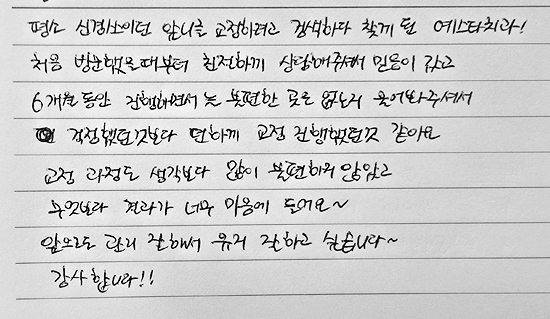 평소 신경쓰이던 앞니를 교정하려고 검색하다 찾게 된 예스타치과!
처음 방문했을때부터 친절하게 상담해주셔서 믿음이 갔고
6개월동안 진행하면서도 불편한 곳은 없는지 물어봐주셔서
걱정했던것보다 편하게 교정 진행했던것 같아요
교정 과정도 생각보다 많이 불편하지 않았고
무엇보다 결과가 너무 마음에 들어요~
앞으로도 관리 잘해서 유지 잘하고 싶습니다~
감사합니다!!